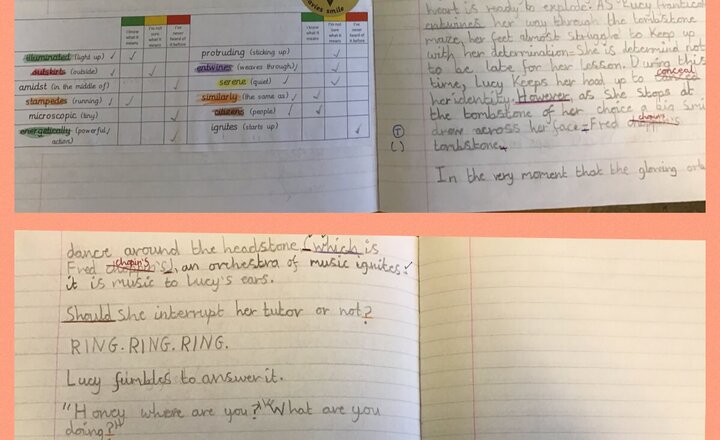 movies smile
I know what it means
I'm not sure what it means
I've never heard of it before
I know what it means
I'm not sure what it means
I've never heard of it before
illuminated (light up)
outskirts (outside)
amidst (in the middle of)
stampedes (running)
microscopic (tiny)
energetically (powerful action)
protruding (sticking up)
entwines (weaves through)
serene (quiet)
similarly (the same as)
citizens (people)
ignites (starts up)
heart is ready to explode. AS Lucy frantical
entwines her way through the tombstone
maze, her feet almost struggle to keep up
with her determination=She is determind not
to be late for her lesson. During this
time, Lucy keeps her head up to conceal
her identity. However, as She stops at
the tombstone of her choice a big smi
draw across her face=Fred chopin's
tombstone.
In the very moment that the glowing
dance around the headstone (which is
Fred chopin's), an orchestra of music ignites:
it is music to Lucy's ears.
Should she interrupt her tutor or not?
RING. RING. RING.
Lucy fumbles to answer it.
"Honey where are you?" "What are you
doing?"